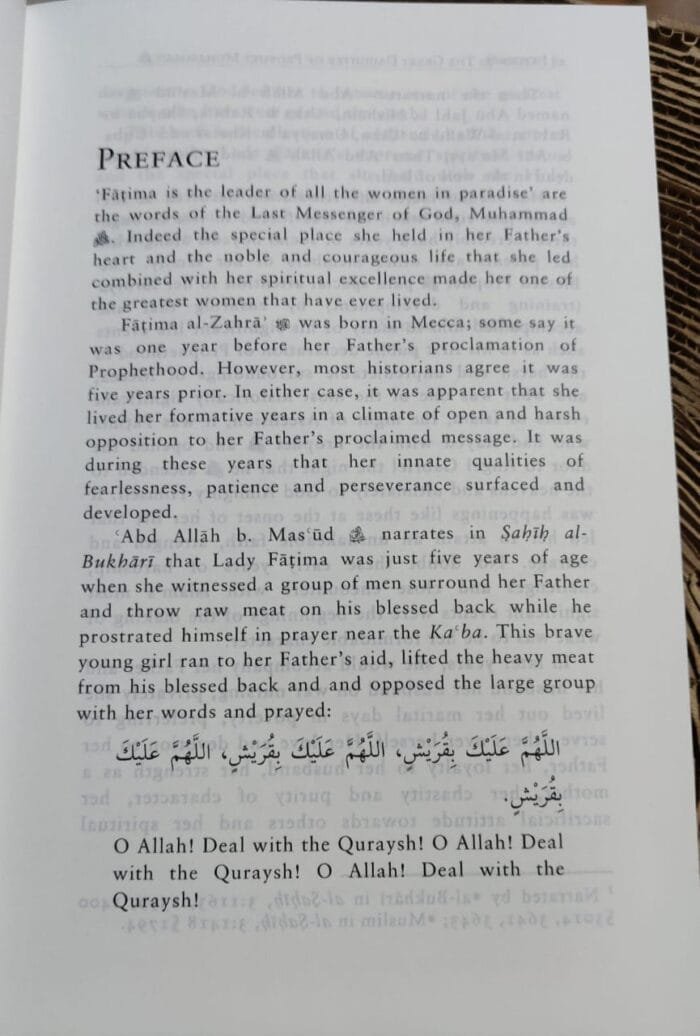 PREFACE
‘Fāṭima is the leader of all the women in paradise’ are
the words of the Last Messenger of God, Muhammad
ﷺ. Indeed the special place she held in her Father’s
heart and the noble and courageous life that she led
combined with her spiritual excellence made her one of
the greatest women that have ever lived.
Fāṭima al-Zahrāʾ was born in Mecca; some say it
was one year before her Father’s proclamation of
Prophethood. However, most historians agree it was
five years prior. In either case, it was apparent that she
lived her formative years in a climate of open and harsh
opposition to her Father’s proclaimed message. It was
during these years that her innate qualities of
fearlessness, patience and perseverance surfaced and
developed.
ʿAbd Allāh b. Masʿūd narrates in Ṣaḥīḥ al-
Bukhārī that Lady Fāṭima was just five years of age
when she witnessed a group of men surround her Father
and throw raw meat on his blessed back while he
prostrated himself in prayer near the Kaʿba. This brave
young girl ran to her Father’s aid, lifted the heavy meat
from his blessed back and and opposed the large group
with her words and prayed:
اللَّهُمَّ عَلَيْكَ بِقُرَيْشٍ، اللَّهُمَّ عَلَيْكَ بِقُرَيْشٍ، اللَّهُمَّ عَلَيْكَ
بِقُرَيْشٍ.
O Allah! Deal with the Quraysh! O Allah! Deal
with the Quraysh! O Allah! Deal with the
Quraysh!